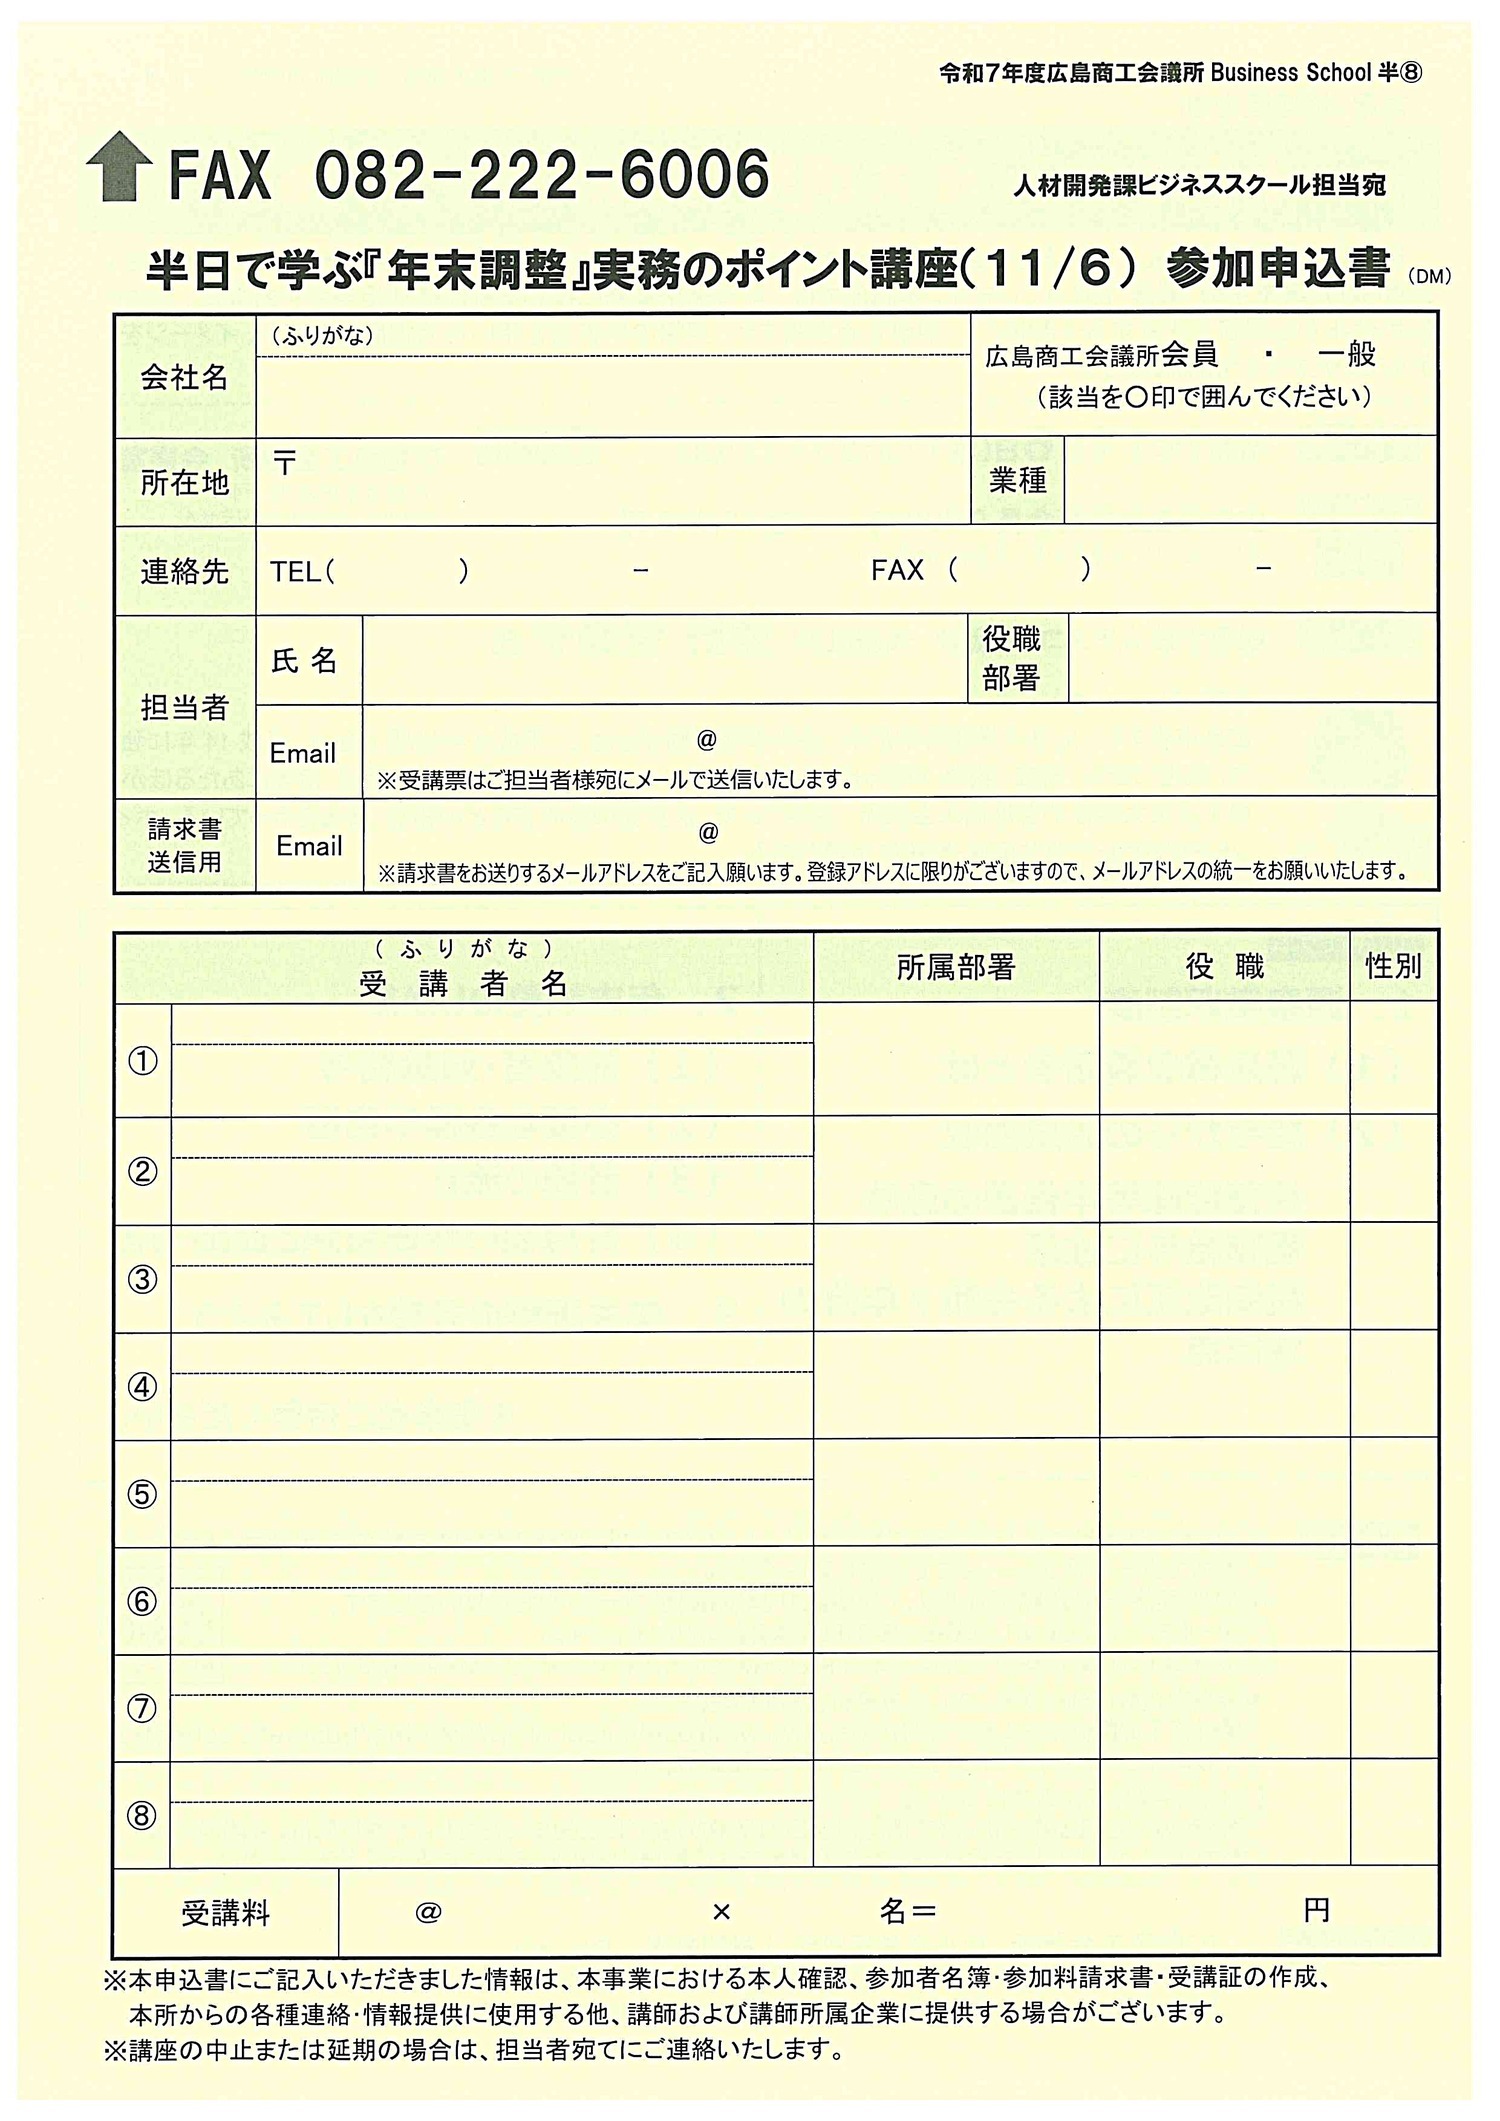 令和7年度広島商工会議所 Business School 半⑧
FAX 082-222-6006
人材開発課ビジネススクール担当宛
半日で学ぶ『年末調整』実務のポイント講座(11/6) 参加申込書 (DM)
会社名
(ふりがな)
広島商工会議所会員 ・ 一般
(該当を〇印で囲んでください)
所在地
〒
業種
連絡先
TEL( ) － FAX ( ) －
担当者
氏 名
役職
部署
Email
@
※受講票はご担当者様宛にメールで送信いたします。
請求書
送信用
Email
@
※請求書をお送りするメールアドレスをご記入願います。登録アドレスに限りがございますので、メールアドレスの統一をお願いいたします。
( ふ り が な )
受 講 者 名
所属部署
役 職
性別
①
②
③
④
⑤
⑥
⑦
⑧
受講料
@ × 名＝ 円
※本申込書にご記入いただきました情報は、本事業における本人確認、参加者名簿・参加料請求書・受講証の作成、
本所からの各種連絡・情報提供に使用する他、講師および講師所属企業に提供する場合がございます。
※講座の中止または延期の場合は、担当者宛てにご連絡いたします。